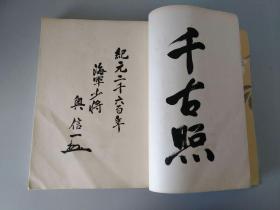 千古照
紀元二千六百年
海軍少将
奥信一